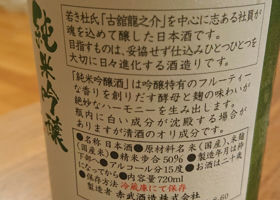 純米吟醸
若き杜氏「古舘龍之介」を中心に志ある社員が
魂を込めて醸した日本酒です。
目指すものは、妥協せず仕込みひとつひとつを
大切に日々進化する酒造りです。
「純米吟醸酒」は吟醸特有のフルーティー
な香りを創りだす酵母と麹の味わいが
絶妙なハーモニーを生み出します。
瓶内に白い成分が沈殿する場合が
ありますが清酒のオリ成分です。
●名称 日本酒 ●原材料名 米(国産)、米麹
(国産米) ●精米歩合 50% ●製造年月は枠
下部へ ●アルコール分 15度 ●お酒は二十歳
になってから ●内容量 720ml
●保存方法 冷蔵庫にて保存
製造者 赤武酒造株式会社